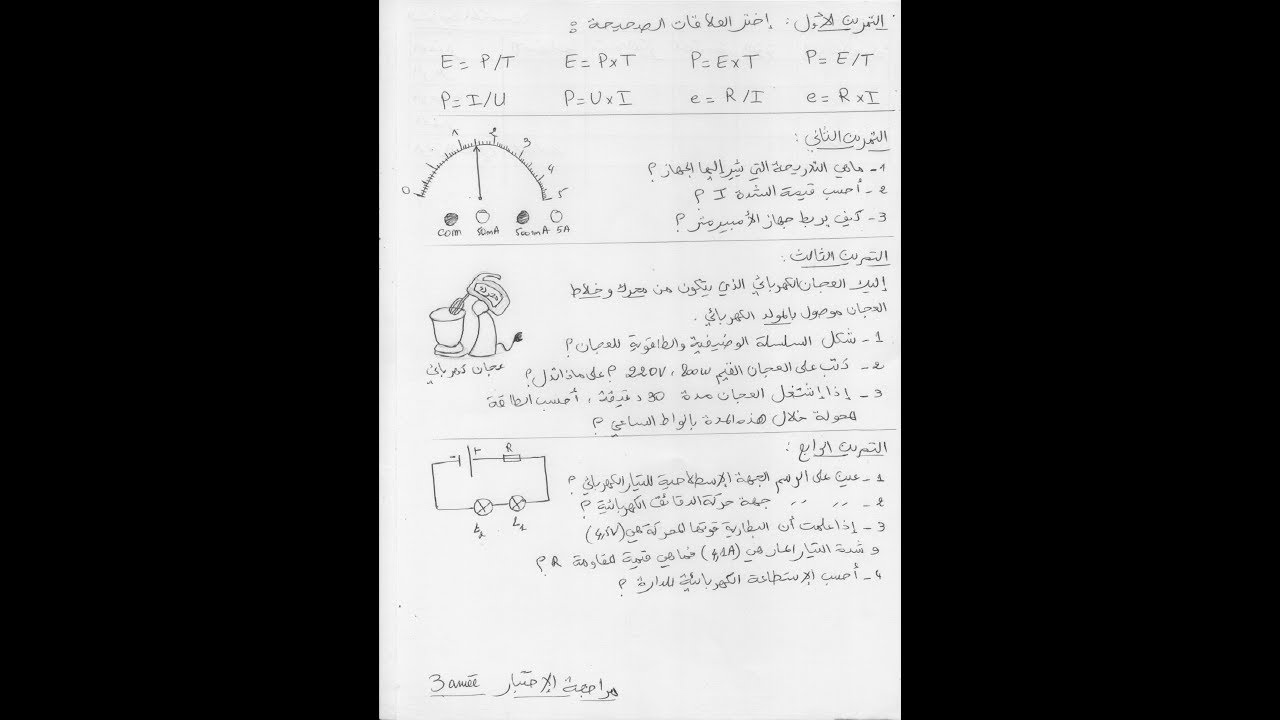 التمرين الأول : إختر العلاقات الصحيحة :
E = P/T E = P×T P = E×T P = E/T
P = I/U P = U×I e = R/I e = R×I
التمرين الثاني :
1 - ماهي التدريجة التي يشير إليها الجهاز ؟
2 - أحسب قيمة الشدة I ؟
3 - كيف يربط جهاز الأمبير متر ؟
0 1 2 3 4 5
com 50mA 500mA 5A
التمرين الثالث :
إليك العجان الكهربائي الذي يتكون من محرك و خلاط
العجان موصول بالمولد الكهربائي .
1 - شكل السلسلة الوضيفية والطاقوية للعجان ؟
2 - كتب على العجان القيم 220V ، 200W ؟ على ماذا تدل ؟
3 - إذا إشتغل العجان مدة 30 دقيقة ، أحسب الطاقة
المحولة خلال هذه المدة بالواط الساعي ؟
عجان كهربائي
التمرين الرابع :
1 - عين على الرسم الجهة الإسطلاحية للتيار الكهربائي ؟
2 - ،، ،، جهة حركة الدقائق الكهربائية ؟
3 - إذا علمت أن البطارية قوتها المحركة هي
و شدة التيار المار هي فما هي قيمة المقاومة R ؟
4 - أحسب الإستطاعة الكهربائية للدارة ؟
- + R
L2 L1
مراجعة الإختبار 3 année